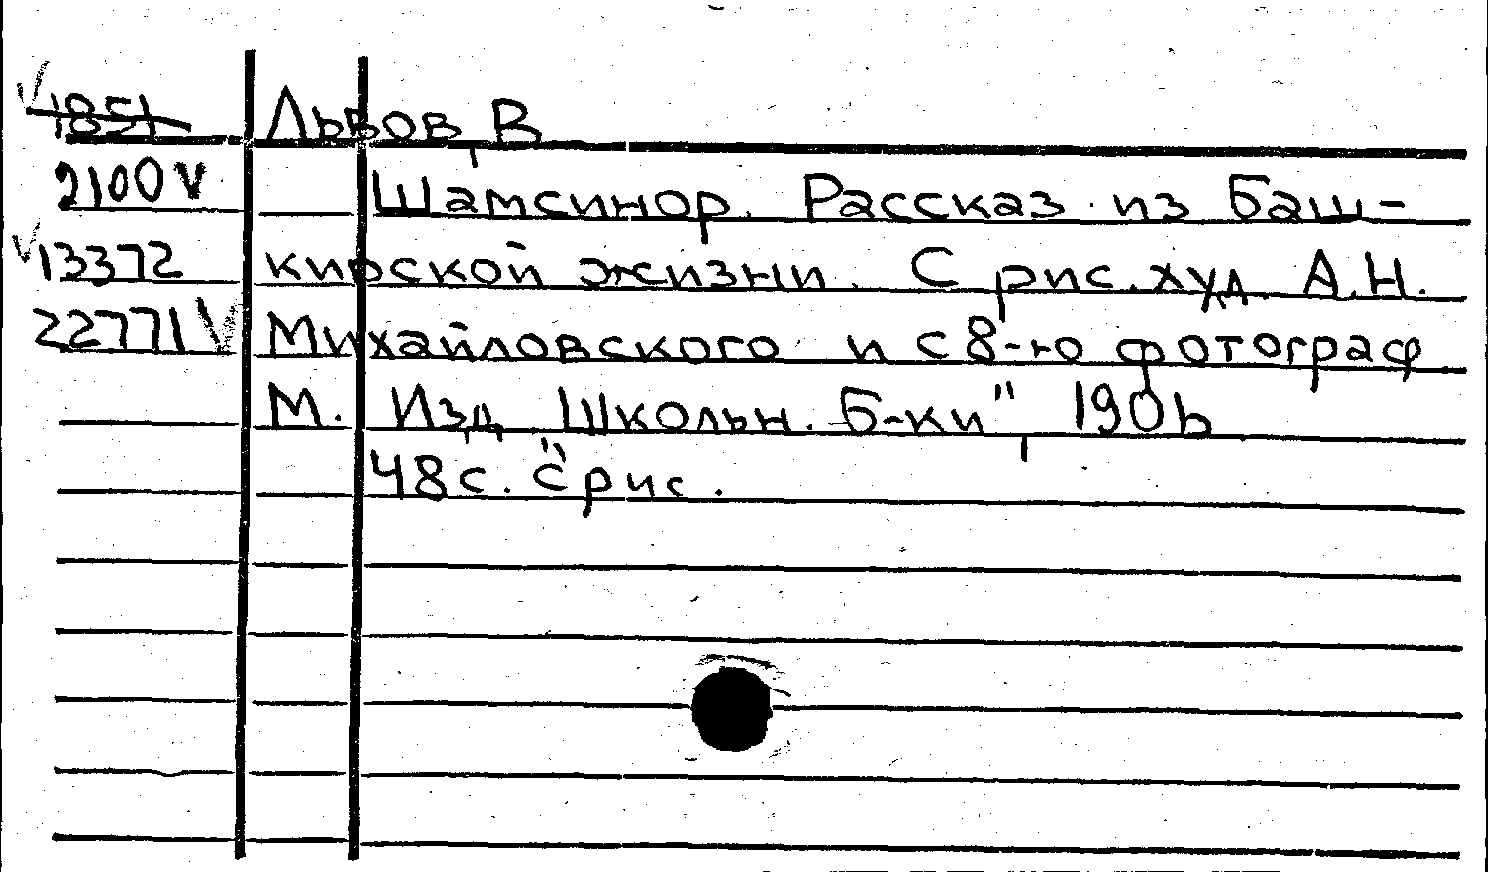 1851 Львов, В
2100 V Шамсинор. Рассказ из Баш-
V 13372 кирской жизни. С рис. худ. А.Н.
22771 V Михайловского и с 8-ю фотограф
М. Изд. "Школьн. Б-ки", 1906
48 с. с рис.